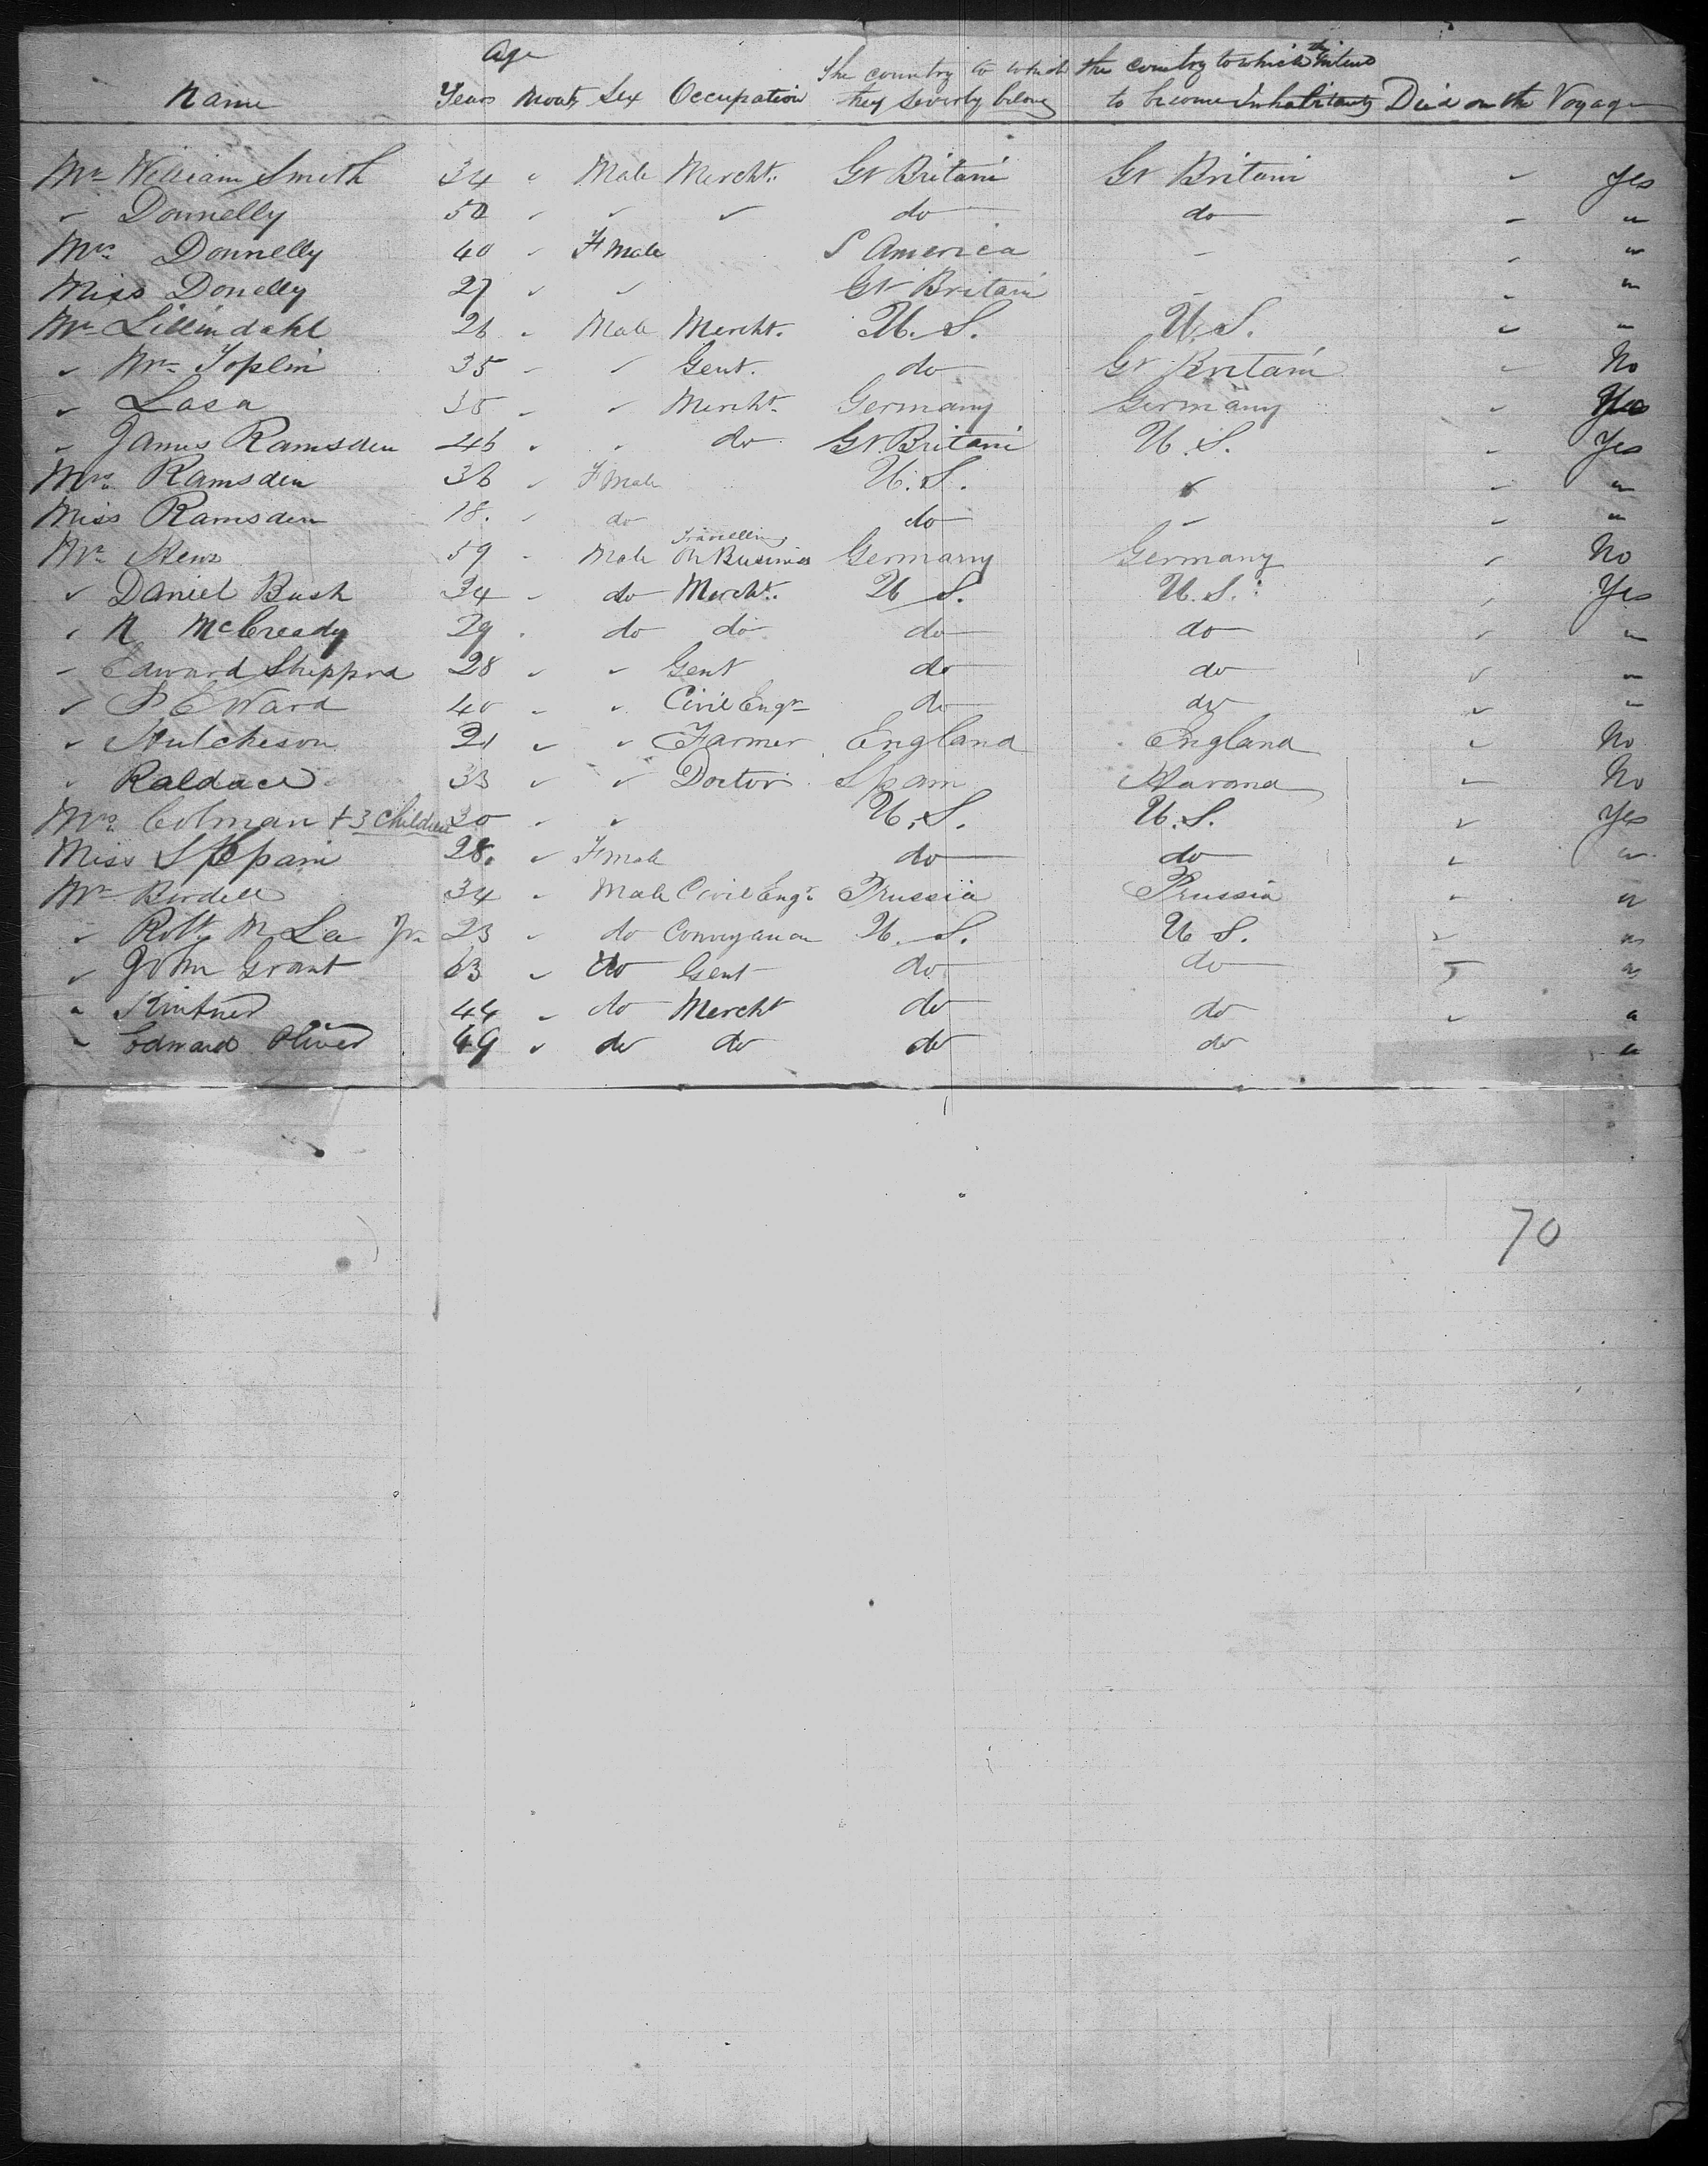 Age
The country to which the country to which they intend
Name Years Month Sex Occupation they severly belong to become inhabitants Died on the Voyage
Mr William Smith 34 " Male Mercht. Gt Britain Gt Britain " Yes
" Donnelly 50 " " " do do " "
Mrs. Donnelly 40 " F Male S America " " "
Miss Donelly 27 " " Gt Britain " " "
Mr Lillindahl 26 " Male Mercht. U.S. U.S. " "
" Mr Toplin 35 " " Gent. do Gt Britain " No
" Lasa 38 " " Mercht. Germany Germany " Yes
" James Ramsden 46 " " do Gt Britain U.S. " Yes
Mrs. Ramsden 36 " F Male U.S. " " "
Miss Ramsden 18. " do do " " "
Travelling
Mr 59 " Male On Business Germany Germany " No
" Daniel Bush 34 " do Mercht. U S. U.S. " Yes
" N McCready 29 " do do do do " "
" Edward Shipprd 28 " " Gent do do " "
" P E Ward 40 " " Civil Engr do do " "
" Hutcheson 21 " " Farmer England England " No
" 33 " " Doctor Spain Havana " No
Mrs. Colman + 3 Children 30 " " U.S. U.S. " Yes
Miss 28. " F Male do do " "
Mr Bordell 34 " Male Civil Engr Prussia Prussia " "
" Robt. M La Jr 23 " do Conveyance U.S. U S. " "
" John Grant 63 " do Gent do do " "
" Kintner 44 " do Mercht do do " "
" Edward Oliver 49 " do do do do "
70